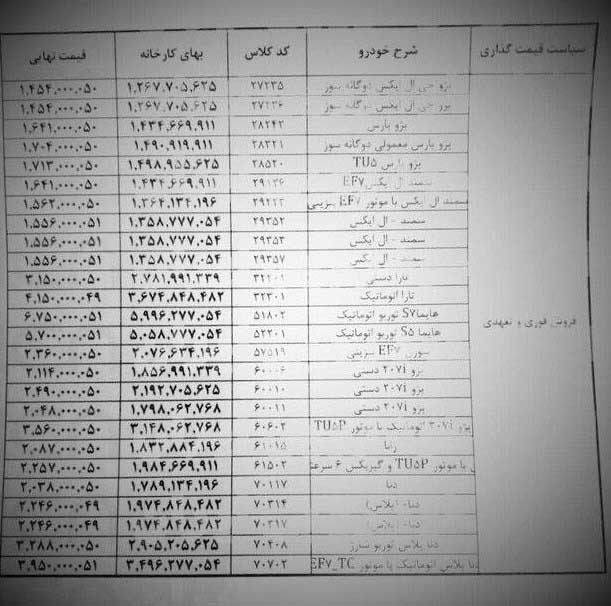 سیاست قیمت گذاری شرح خودرو کد کلاس بهای کارخانه قیمت نهایی
پژو جی ال ایکس دوگانه سوز ۲۷۲۳۵ ۱,۲۶۷,۷۰۵,۶۲۵ ۱,۴۵۴,۰۰۰,۰۵۰
پژو جی ال ایکس دوگانه سوز ۲۷۲۳۶ ۱,۲۶۷,۷۰۵,۶۲۵ ۱,۴۵۴,۰۰۰,۰۵۰
پژو پارس ۲۸۲۴۲ ۱,۴۳۴,۶۶۹,۹۱۱ ۱,۶۴۱,۰۰۰,۰۵۰
پژو پارس معمولی دوگانه سوز ۲۸۳۲۱ ۱,۴۹۰,۹۱۹,۹۱۱ ۱,۷۰۴,۰۰۰,۰۵۰
پژو پارس TU۵ ۲۸۵۲۰ ۱,۴۹۸,۹۵۵,۶۲۵ ۱,۷۱۳,۰۰۰,۰۵۰
سمند ال ایکس EF۷ ۲۹۱۳۶ ۱,۴۳۴,۶۶۹,۹۱۱ ۱,۶۴۱,۰۰۰,۰۵۰
سمند ال ایکس با موتور EF۷ بنزینی ۱,۳۶۴,۱۳۴,۱۹۶ ۱,۵۶۲,۰۰۰,۰۵۰
سمند - ال ایکس ۲۹۳۵۲ ۱,۳۵۸,۷۷۷,۰۵۴ ۱,۵۵۶,۰۰۰,۰۵۱
سمند - ال ایکس ۲۹۳۵۳ ۱,۳۵۸,۷۷۷,۰۵۴ ۱,۵۵۶,۰۰۰,۰۵۱
سمند - ال ایکس ۲۹۳۵۷ ۱,۳۵۸,۷۷۷,۰۵۴ ۱,۵۵۶,۰۰۰,۰۵۱
تارا دستی ۳۲۲۰۱ ۲,۷۸۱,۹۹۱,۳۳۹ ۳,۱۵۰,۰۰۰,۰۵۰
تارا اتوماتیک ۳۲۳۰۱ ۳,۶۷۴,۸۴۸,۴۸۲ ۴,۱۵۰,۰۰۰,۰۴۹
هایما S۷ توربو اتوماتیک ۵۱۸۰۲ ۵,۹۹۶,۲۷۷,۰۵۴ ۶,۷۵۰,۰۰۰,۰۵۱
فروش فوری و تعهدی هایما S۵ توربو اتوماتیک ۵۲۲۰۱ ۵,۰۵۸,۷۷۷,۰۵۴ ۵,۷۰۰,۰۰۰,۰۵۱
سورن EF۷ بنزینی ۵۷۵۱۹ ۲,۰۷۶,۶۳۴,۱۹۶ ۲,۳۶۰,۰۰۰,۰۵۰
پژو ۲۰۷i دستی ۶۰۰۰۶ ۱,۸۵۶,۹۹۱,۳۳۹ ۲,۱۱۴,۰۰۰,۰۵۰
پژو ۲۰۷i دستی ۶۰۰۱۰ ۲,۱۹۲,۷۰۵,۶۲۵ ۲,۴۹۰,۰۰۰,۰۵۰
پژو ۲۰۷i دستی ۶۰۰۱۱ ۱,۷۹۸,۰۶۲,۷۶۸ ۲,۰۴۸,۰۰۰,۰۵۰
پژو ۲۰۷i اتوماتیک با موتور TU۵P ۶۰۶۰۲ ۳,۱۴۸,۰۶۲,۷۶۸ ۳,۵۶۰,۰۰۰,۰۵۰
رانا ۶۱۰۱۵ ۱,۸۳۲,۸۸۴,۱۹۶ ۲,۰۸۷,۰۰۰,۰۵۰
با موتور TU۵P و گیربکس ۶ سرعته ۶۱۵۰۲ ۱,۹۸۴,۶۶۹,۹۱۱ ۲,۲۵۷,۰۰۰,۰۵۰
دنا ۷۰۱۱۷ ۱,۷۸۹,۱۳۴,۱۹۶ ۲,۰۳۸,۰۰۰,۰۵۰
دنا- (پلاس) ۷۰۳۱۴ ۱,۹۷۴,۸۴۸,۴۸۲ ۲,۲۴۶,۰۰۰,۰۴۹
دنا- (پلاس) ۷۰۳۱۷ ۱,۹۷۴,۸۴۸,۴۸۲ ۲,۲۴۶,۰۰۰,۰۴۹
دنا پلاس توربو شارژ ۷۰۴۰۸ ۲,۹۰۵,۲۰۵,۶۲۵ ۳,۲۸۸,۰۰۰,۰۵۰
دنا پلاس اتوماتیک با موتور EF۷_TC ۷۰۷۰۲ ۳,۴۹۶,۲۷۷,۰۵۴ ۳,۹۵۰,۰۰۰,۰۵۱